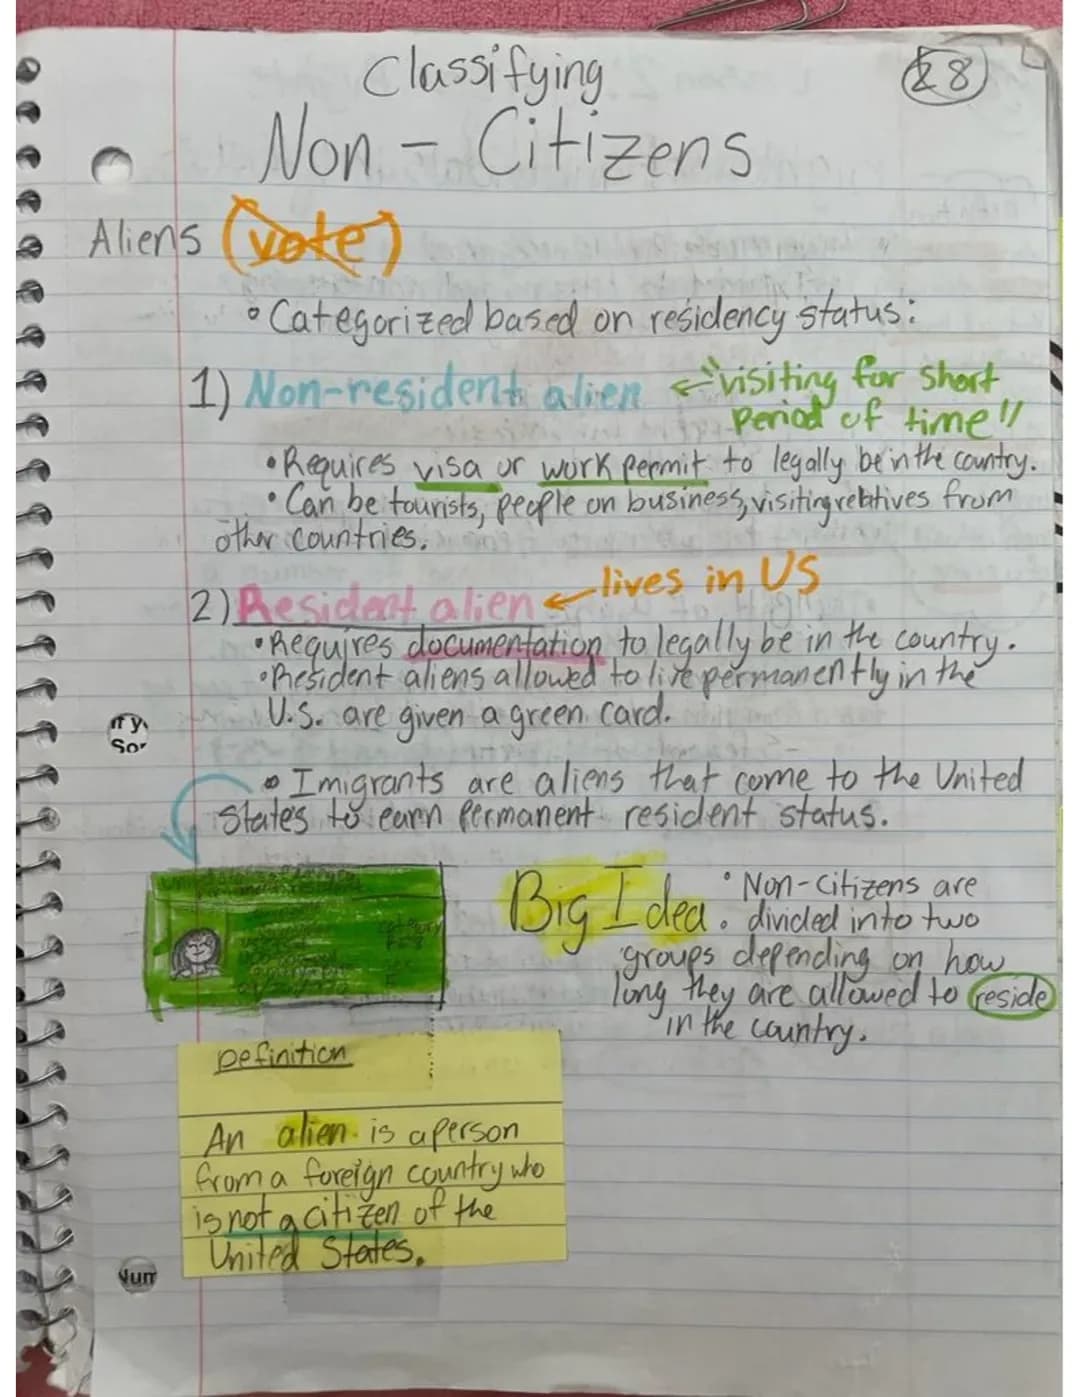 Classifying
28
Non - Citizens
Aliens (vote)
• Categorized based on residency status:
1) Non-resident alien ← "visiting for short
period of time"
• Requires visa or work permit to legally be in the country.
• Can be tourists, people on business, visiting relatives from
other countries.
2) Resident alien ← lives in US
• Requires documentation to legally be in the country.
• Resident aliens allowed to live permanently in the
U.S. are given a green card.
• Imigrants are aliens that come to the United
States to earn permanent resident status.
Big Idea. • Non-citizens are
divided into two
groups depending on how
long they are allowed to reside
in the country.
Definition
An alien is a person
from a foreign country who
is not a citizen of the
United States.